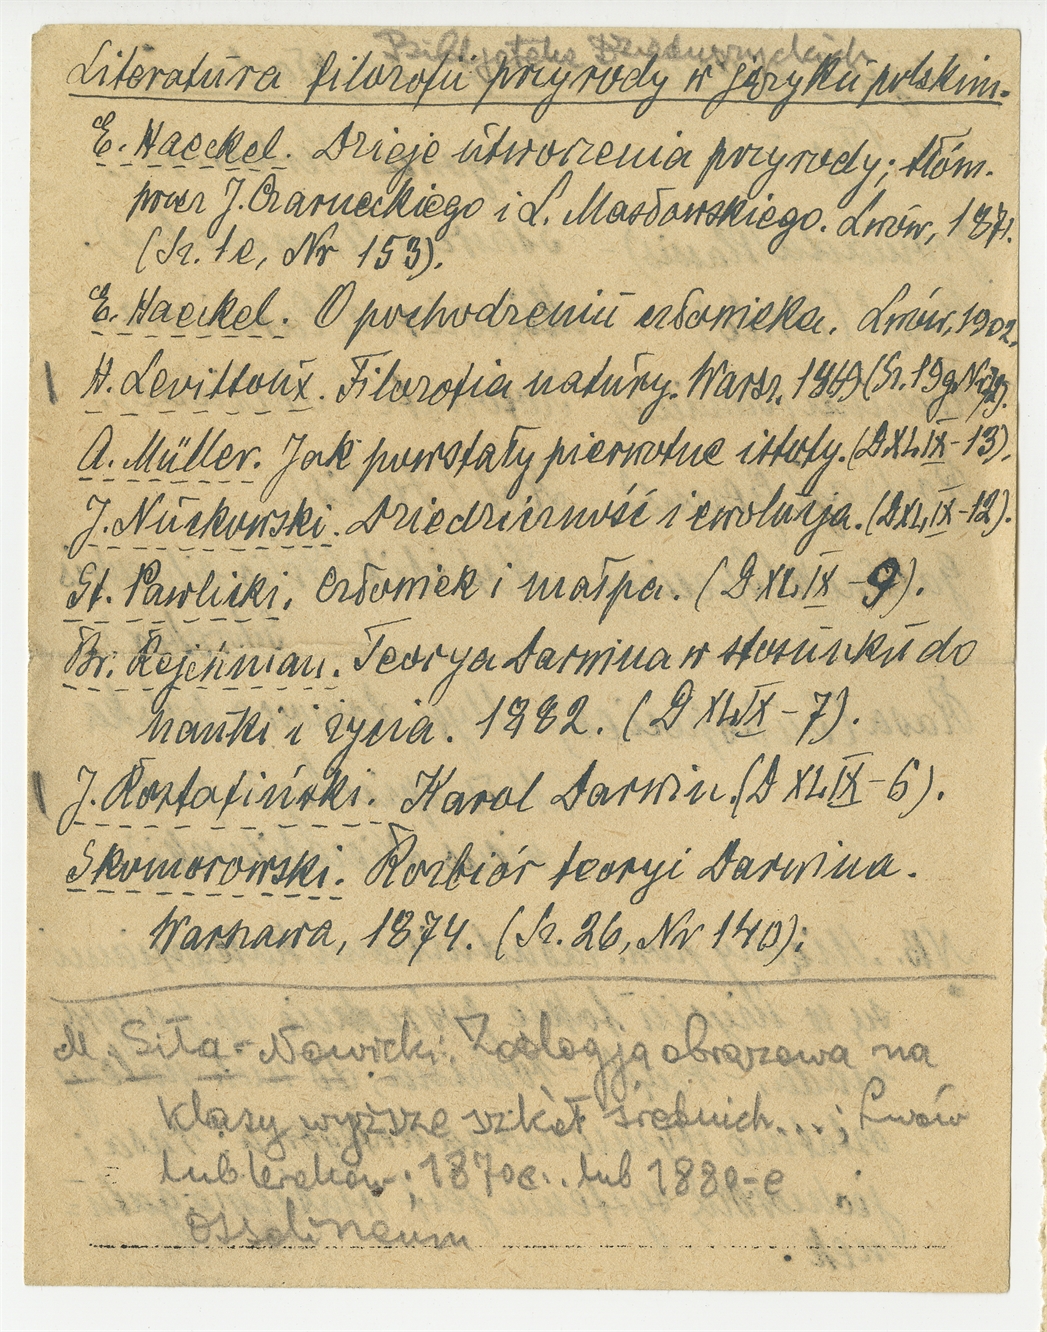 Bibljoteka Dzieduszyckich
Literatura filozofii przyrody w języku polskim.
E. Haeckel. Dzieje utworzenia przyrody; tłóm.
przez J. Czarneckiego i L. Masłowskiego. Lwów, 1871.
(Sz. 1e, Nr 153).
E. Haeckel. O pochodzeniu człowieka. Lwów, 1902.
H. Levittoux. Filozofia natury. Warsz. 1869 (Sz. 19g Nr
A. Müller. Jak powstały pierwotne istoty. (D XL.IX-13).
J. Nuckowski. Dziedziczność i ewolucja. (D XL.IX-12).
St. Pawlicki. Człowiek i małpa. (D XL.IX-9).
Br. Rejchman. Teorya Darwina w stosunku do
nauki i życia. 1882. (D XL.IX-7).
J. Rostafiński. Karol Darwin. (D XL.IX-6).
Skomorowski. Rozbiór teoryi Darwina.
Warszawa, 1874. (Sz. 26, Nr 140).
M. Siła-Nowicki: Zoologja obrazowa na
klasy wyższe szkół średnich...; Lwów
lub Kraków; 1870e.. lub 1880-e
Ossolineum